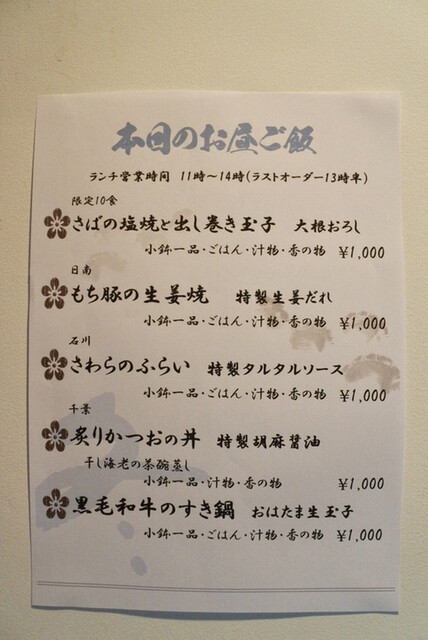 本日のお昼ご飯
ランチ営業時間 11時～14時(ラストオーダー13時半)
限定10食
さばの塩焼と出し巻き玉子 大根おろし
小鉢一品・ごはん・汁物・香の物 ¥1,000
日南
もち豚の生姜焼 特製生姜だれ
小鉢一品・ごはん・汁物・香の物 ¥1,000
石川
さわらのふらい 特製タルタルソース
小鉢一品・ごはん・汁物・香の物 ¥1,000
千葉
炙りかつおの丼 特製胡麻醤油
干し海老の茶碗蒸し
小鉢一品・汁物・香の物 ¥1,000
黒毛和牛のすき鍋 おはたま生玉子
小鉢一品・ごはん・汁物・香の物 ¥1,000